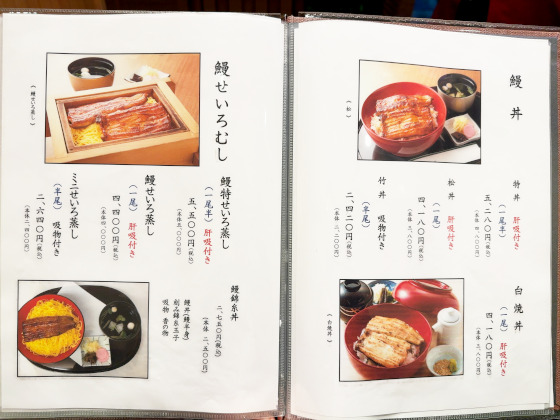 鰻丼
(松)
特丼
(一尾半) 肝吸付き
五、二八〇円(税込)
(本体 四、八〇〇円)
松丼
(一尾) 肝吸付き
四、一八〇円(税込)
(本体 三、八〇〇円)
竹丼
(半尾) 吸物付き
二、四二〇円(税込)
(本体 二、二〇〇円)
白焼丼
(一尾) 肝吸付き
四、一八〇円(税込)
(本体 三、八〇〇円)
(白焼丼)
鰻せいろむし
(鰻せいろ蒸し)
鰻特せいろ蒸し
(一尾半) 肝吸付き
五、五〇〇円(税込)
(本体 五、〇〇〇円)
鰻せいろ蒸し
(一尾) 肝吸付き
四、四〇〇円(税込)
(本体 四、〇〇〇円)
ミニせいろ蒸し
(半尾) 吸物付き
二、六四〇円(税込)
(本体 二、四〇〇円)
鰻錦糸丼
二、七五〇円(税込)
(本体 二、五〇〇円)
鰻丼(鰻半身)
刻み錦糸玉子
吸物 香の物